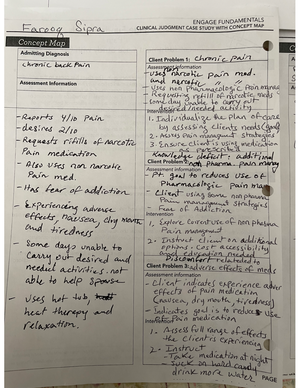 Farooq Sipra
ENGAGE FUNDAMENTALS
CLINICAL JUDGMENT CASE STUDY WITH CONCEPT MAP
Concept Map
Admitting Diagnosis
chronic back Pain
Assessment Information
- Reports 4/10 Pain
- desires 2/10
- Requests refills of narcotic
Pain medication
- Also uses non narcotic
Pain med.
- Has fear of addiction
- experiencing adverse
effects, nausea, dry mouth
and tiredness
- Some days unable to
carry out desired and
needed activities. not
able to help spouse
- Uses hot tub
heat therapy and
relaxation.
Client Problem 1: chronic pain
Assessment Information
- uses narcotic pain med.
and narcotic
- Uses non pharmacologic
- Requesting refill of narcotic meds
- some day unable to carry out
desired needed activity
Intervention
1. Individualize the plan of care
by assessing clients needs
2. Assess pain management strategies
3. Ensure client is using medication
as
Knowledge deficit: additional
Client Problem non pharma. Pain
Assessment Information
- Pt goal to reduces use of
Pharmacologic Pain
- Client using some non pharm
Pain management strategies
- Fear of Addiction
Intervention
1. Explore use of non pharm
Pain management
2- Instruct client on additional
options. cost accessibility
and education needed
Discomfort related to
Client Problem 3: adverse effects of meds
Assessment Information
- Client indicates experience adver
effects of pain medication
(nausea, dry mouth, tiredness)
- Indicates goal is to reduce use
Pain medication
1- Assess full range of effects
the client is experiencing
2- Instruct
- Take medication at night
- Suck on hard candy
drink more water
PAGE